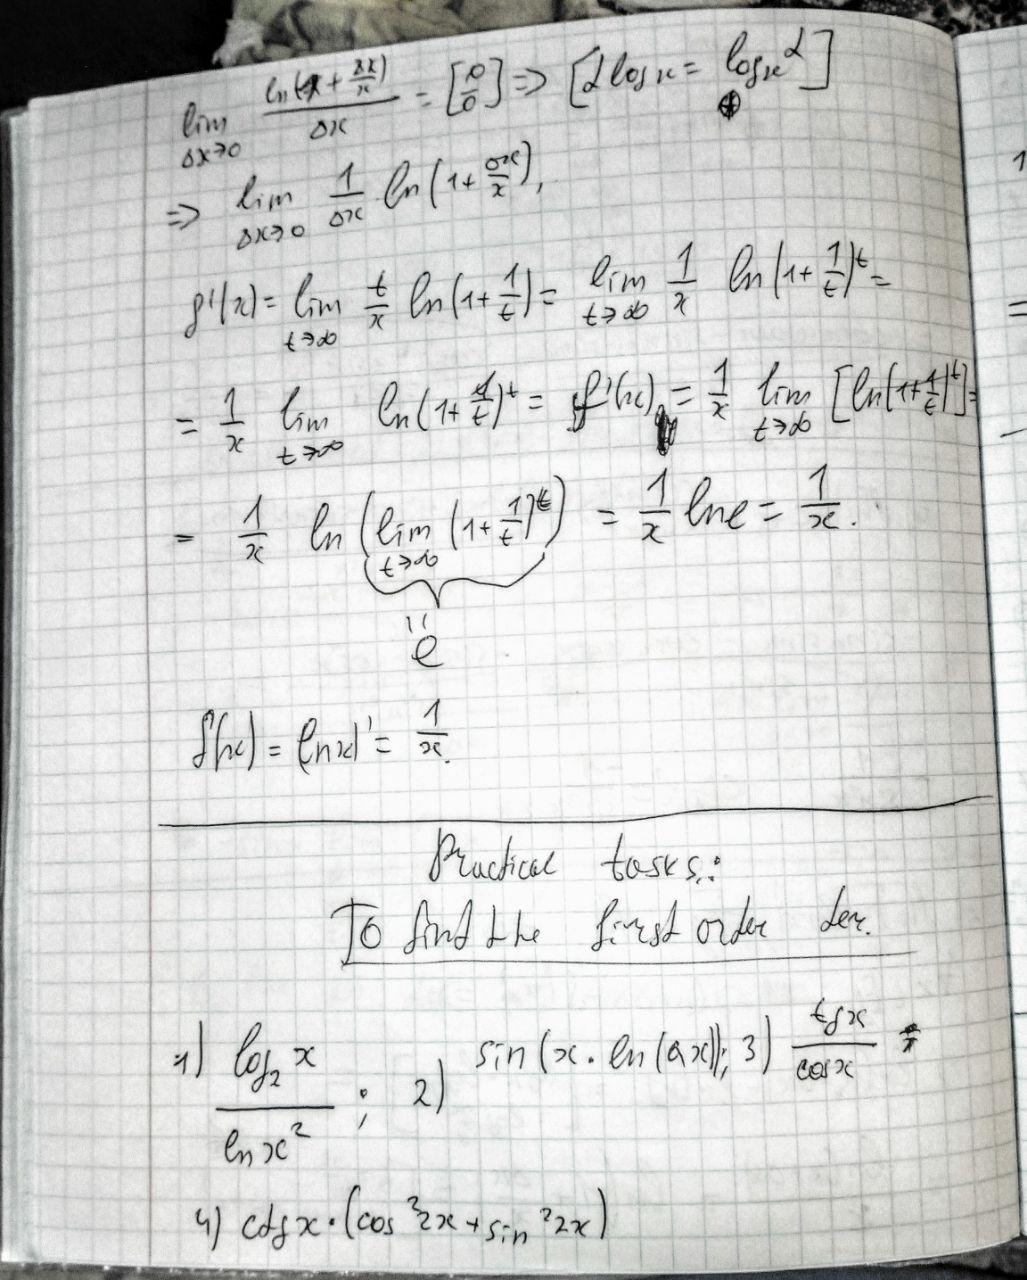 lim Δx→0 ln(1 + Δx/x) / Δx = [0/0] => [α log x = log x^α]
=> lim Δx→0 1/Δx ln(1 + Δx/x),
f'(x) = lim t→∞ t/x ln(1 + 1/t) = lim t→∞ 1/x ln(1 + 1/t)^t =
= 1/x lim t→∞ ln(1 + 1/t)^t = f'(x) = 1/x lim t→∞ [ln(1 + 1/t)^t] =
= 1/x ln(lim t→∞ (1 + 1/t)^t) = 1/x ln e = 1/x.
"
e
f'(x) = (ln x)' = 1/x.
Practical tasks:
To find the first order der.
1) log₂ x / ln x² ; 2) sin(x · ln(ax)); 3) tg x / cos x
4) ctg x · (cos² 2x + sin² 2x)